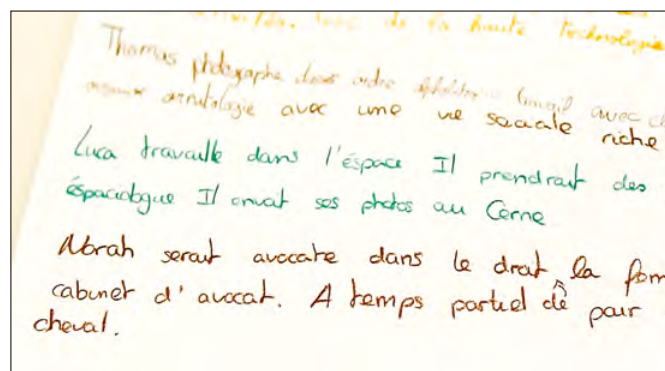 de la haute technologie
Thomas photographe dans ordre travail avec
ornitologie avec une vie sociale riche
Luca travaille dans l'éspace Il prendrait des
éspaciologue Il envait ses photos au Cerne
Norah serait avocate dans le droit la
cabinet d'avocat. A temps partiel de pair
cheval.